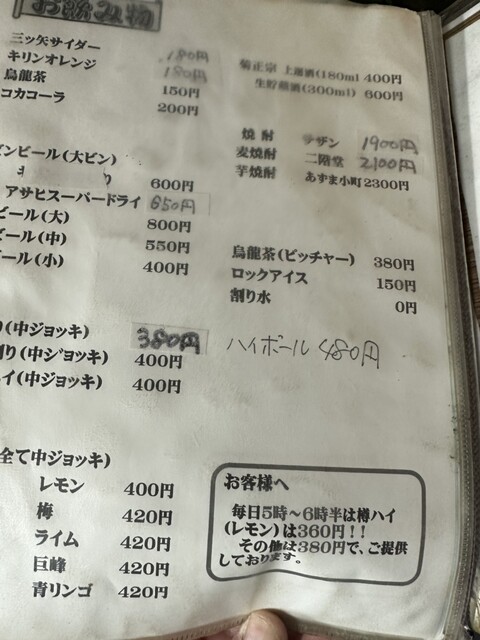 お飲み物
三ッ矢サイダー 180円
キリンオレンジ 180円
烏龍茶 150円
コカコーラ 200円
ビンビール(大ビン)
600円
アサヒスーパードライ 650円
ビール(大) 800円
ール(中) 550円
ール(小) 400円
(中ジョッキ) 380円
割り(中ジョッキ) 400円
イ(中ジョッキ) 400円
全て中ジョッキ)
レモン 400円
梅 420円
ライム 420円
巨峰 420円
青リンゴ 420円
菊正宗 上撰酒(180ml) 400円
生貯蔵酒(300ml) 600円
焼酎 1900円
麦焼酎 二階堂 2100円
芋焼酎 あずま小町 2300円
烏龍茶(ピッチャー) 380円
ロックアイス 150円
割り水 0円
ハイボール 480円
お客様へ
毎日5時～6時半は樽ハイ
(レモン)は360円！！
その他は380円で、ご提供
しております。